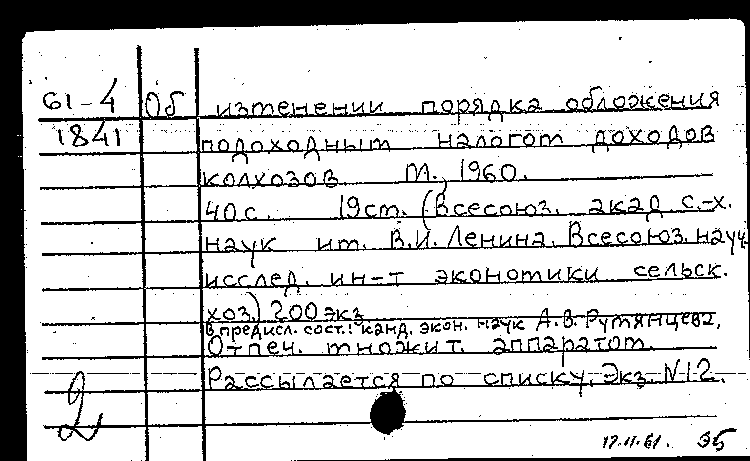 61-4 Об изменении порядка обложения
1841 подоходным налогом доходов
колхозов М., 1960.
40 с. 19 см. (Всесоюз. акад. с.-х.
наук им. В.И. Ленина. Всесоюз. науч.
исслед. ин-т экономики сельск.
хоз.) 200 экз.
В предисл. сост.: канд. экон. наук А.В. Румянцева.
Отпеч. множит. аппаратом.
Рассылается по списку. Экз. №12.
2
17.11.61. 35